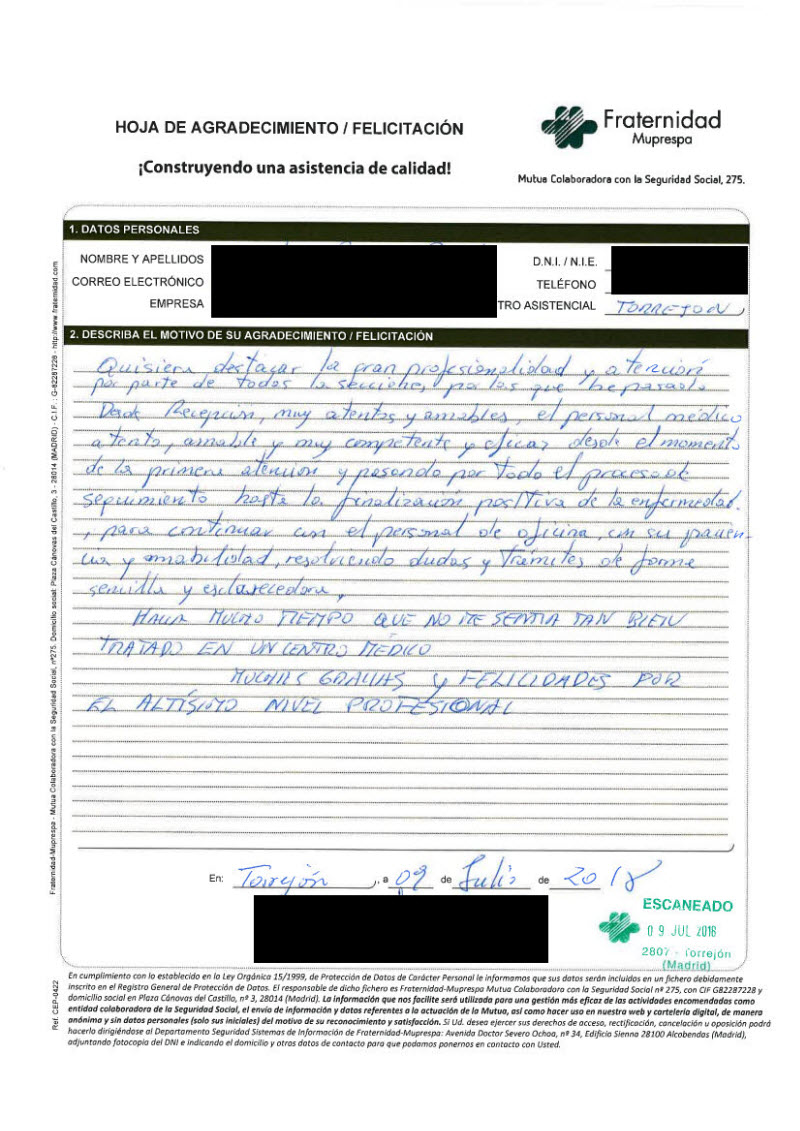 HOJA DE AGRADECIMIENTO / FELICITACIÓN
¡Construyendo una asistencia de calidad!
Fraternidad
Muprespa
Mutua Colaboradora con la Seguridad Social, 275.
1. DATOS PERSONALES
NOMBRE Y APELLIDOS
D.N.I. / N.I.E.
CORREO ELECTRÓNICO
TELÉFONO
EMPRESA
TRO ASISTENCIAL TORREJON
2. DESCRIBA EL MOTIVO DE SU AGRADECIMIENTO / FELICITACIÓN
Quisiera destacar la gran profesionalidad y atención
por parte de todas las secciones, por las que he pasado
Desde Recepción, muy atentos y amables, el personal médico
atento, amable y muy competente y eficaz desde el momento
de la primera atención y pasando por todo el proceso de
seguimiento hasta la finalización positiva de la enfermedad.
, para continuar con el personal de oficina, con su pacien-
cia y amabilidad, resolviendo dudas y trámites de forma
sencilla y esclarecedora,
HACIA MUCHO TIEMPO QUE NO ME SENTIA TAN BIEN
TRATADO EN UN CENTRO MEDICO
MUCHAS GRACIAS y FELICIDADES POR
EL ALTÍSIMO NIVEL PROFESIONAL
En: Torrejón, a 09 de Julio de 2018
ESCANEADO
09 JUL 2018
2807 - Torrejón
(Madrid)
En cumplimiento con lo establecido en la Ley Orgánica 15/1999, de Protección de Datos de Carácter Personal le informamos que sus datos serán incluidos en un fichero debidamente
inscrito en el Registro General de Protección de Datos. El responsable de dicho fichero es Fraternidad-Muprespa Mutua Colaboradora con la Seguridad Social nº 275, con CIF G82287228 y
domicilio social en Plaza Cánovas del Castillo, nº 3, 28014 (Madrid). La información que nos facilite será utilizada para una gestión más eficaz de las actividades encomendadas como
entidad colaboradora de la Seguridad Social, el envío de información y datos referentes a la actuación de la Mutua, así como hacer uso en nuestra web y cartelería digital, de manera
anónima y sin datos personales (solo sus iniciales) del motivo de su reconocimiento y satisfacción. Si Ud. desea ejercer sus derechos de acceso, rectificación, cancelación u oposición podrá
hacerlo dirigiéndose al Departamento Seguridad Sistemas de Información de Fraternidad-Muprespa: Avenida Doctor Severo Ochoa, nº 34, Edificio Sienna 28100 Alcobendas (Madrid),
adjuntando fotocopia del DNI e indicando el domicilio y otros datos de contacto para que podamos ponernos en contacto con Usted.
Fraternidad-Muprespa - Mutua Colaboradora con la Seguridad Social, nº275. Domicilio social: Plaza Cánovas del Castillo, 3 - 28014 (MADRID) - C.I.F. : G-82287228 - http://www.fraternidad.com
Ref. CEP-0422